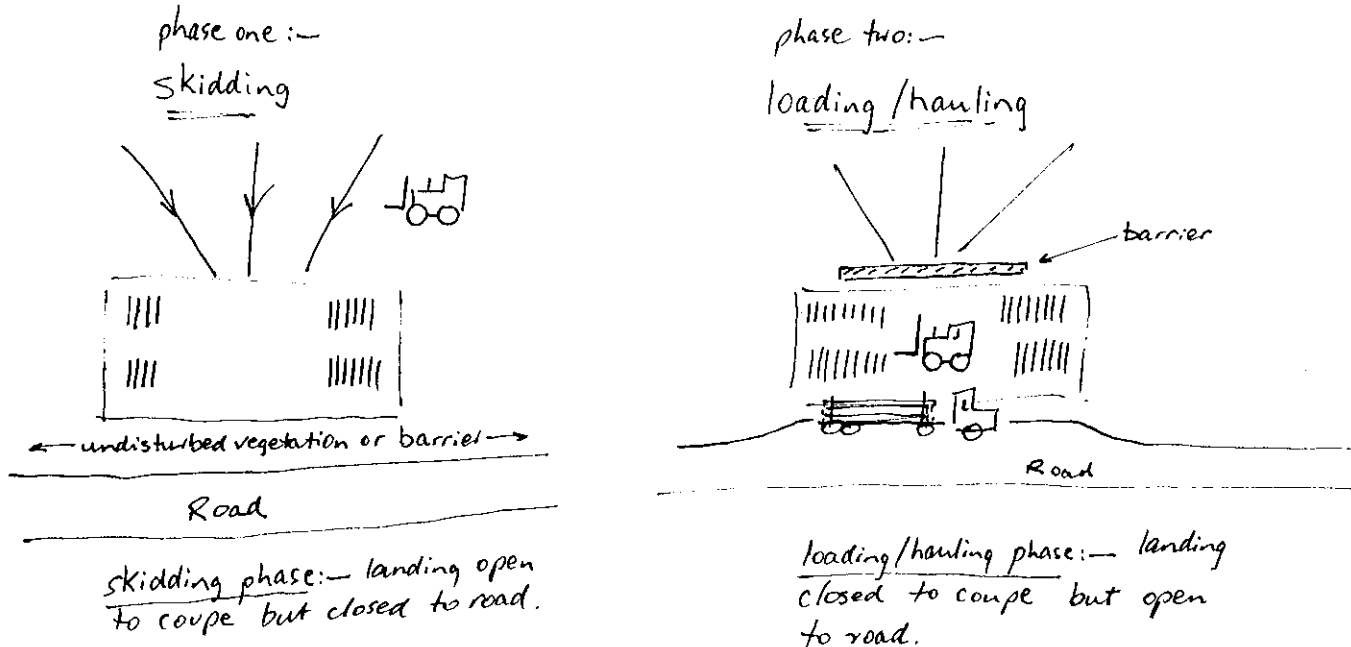 phase one:—
skidding
undisturbed vegetation or barrier
Road
skidding phase:— landing open
to coupe but closed to road.
phase two:—
loading/hauling
barrier
Road
loading/hauling phase:— landing
closed to coupe but open
to road.